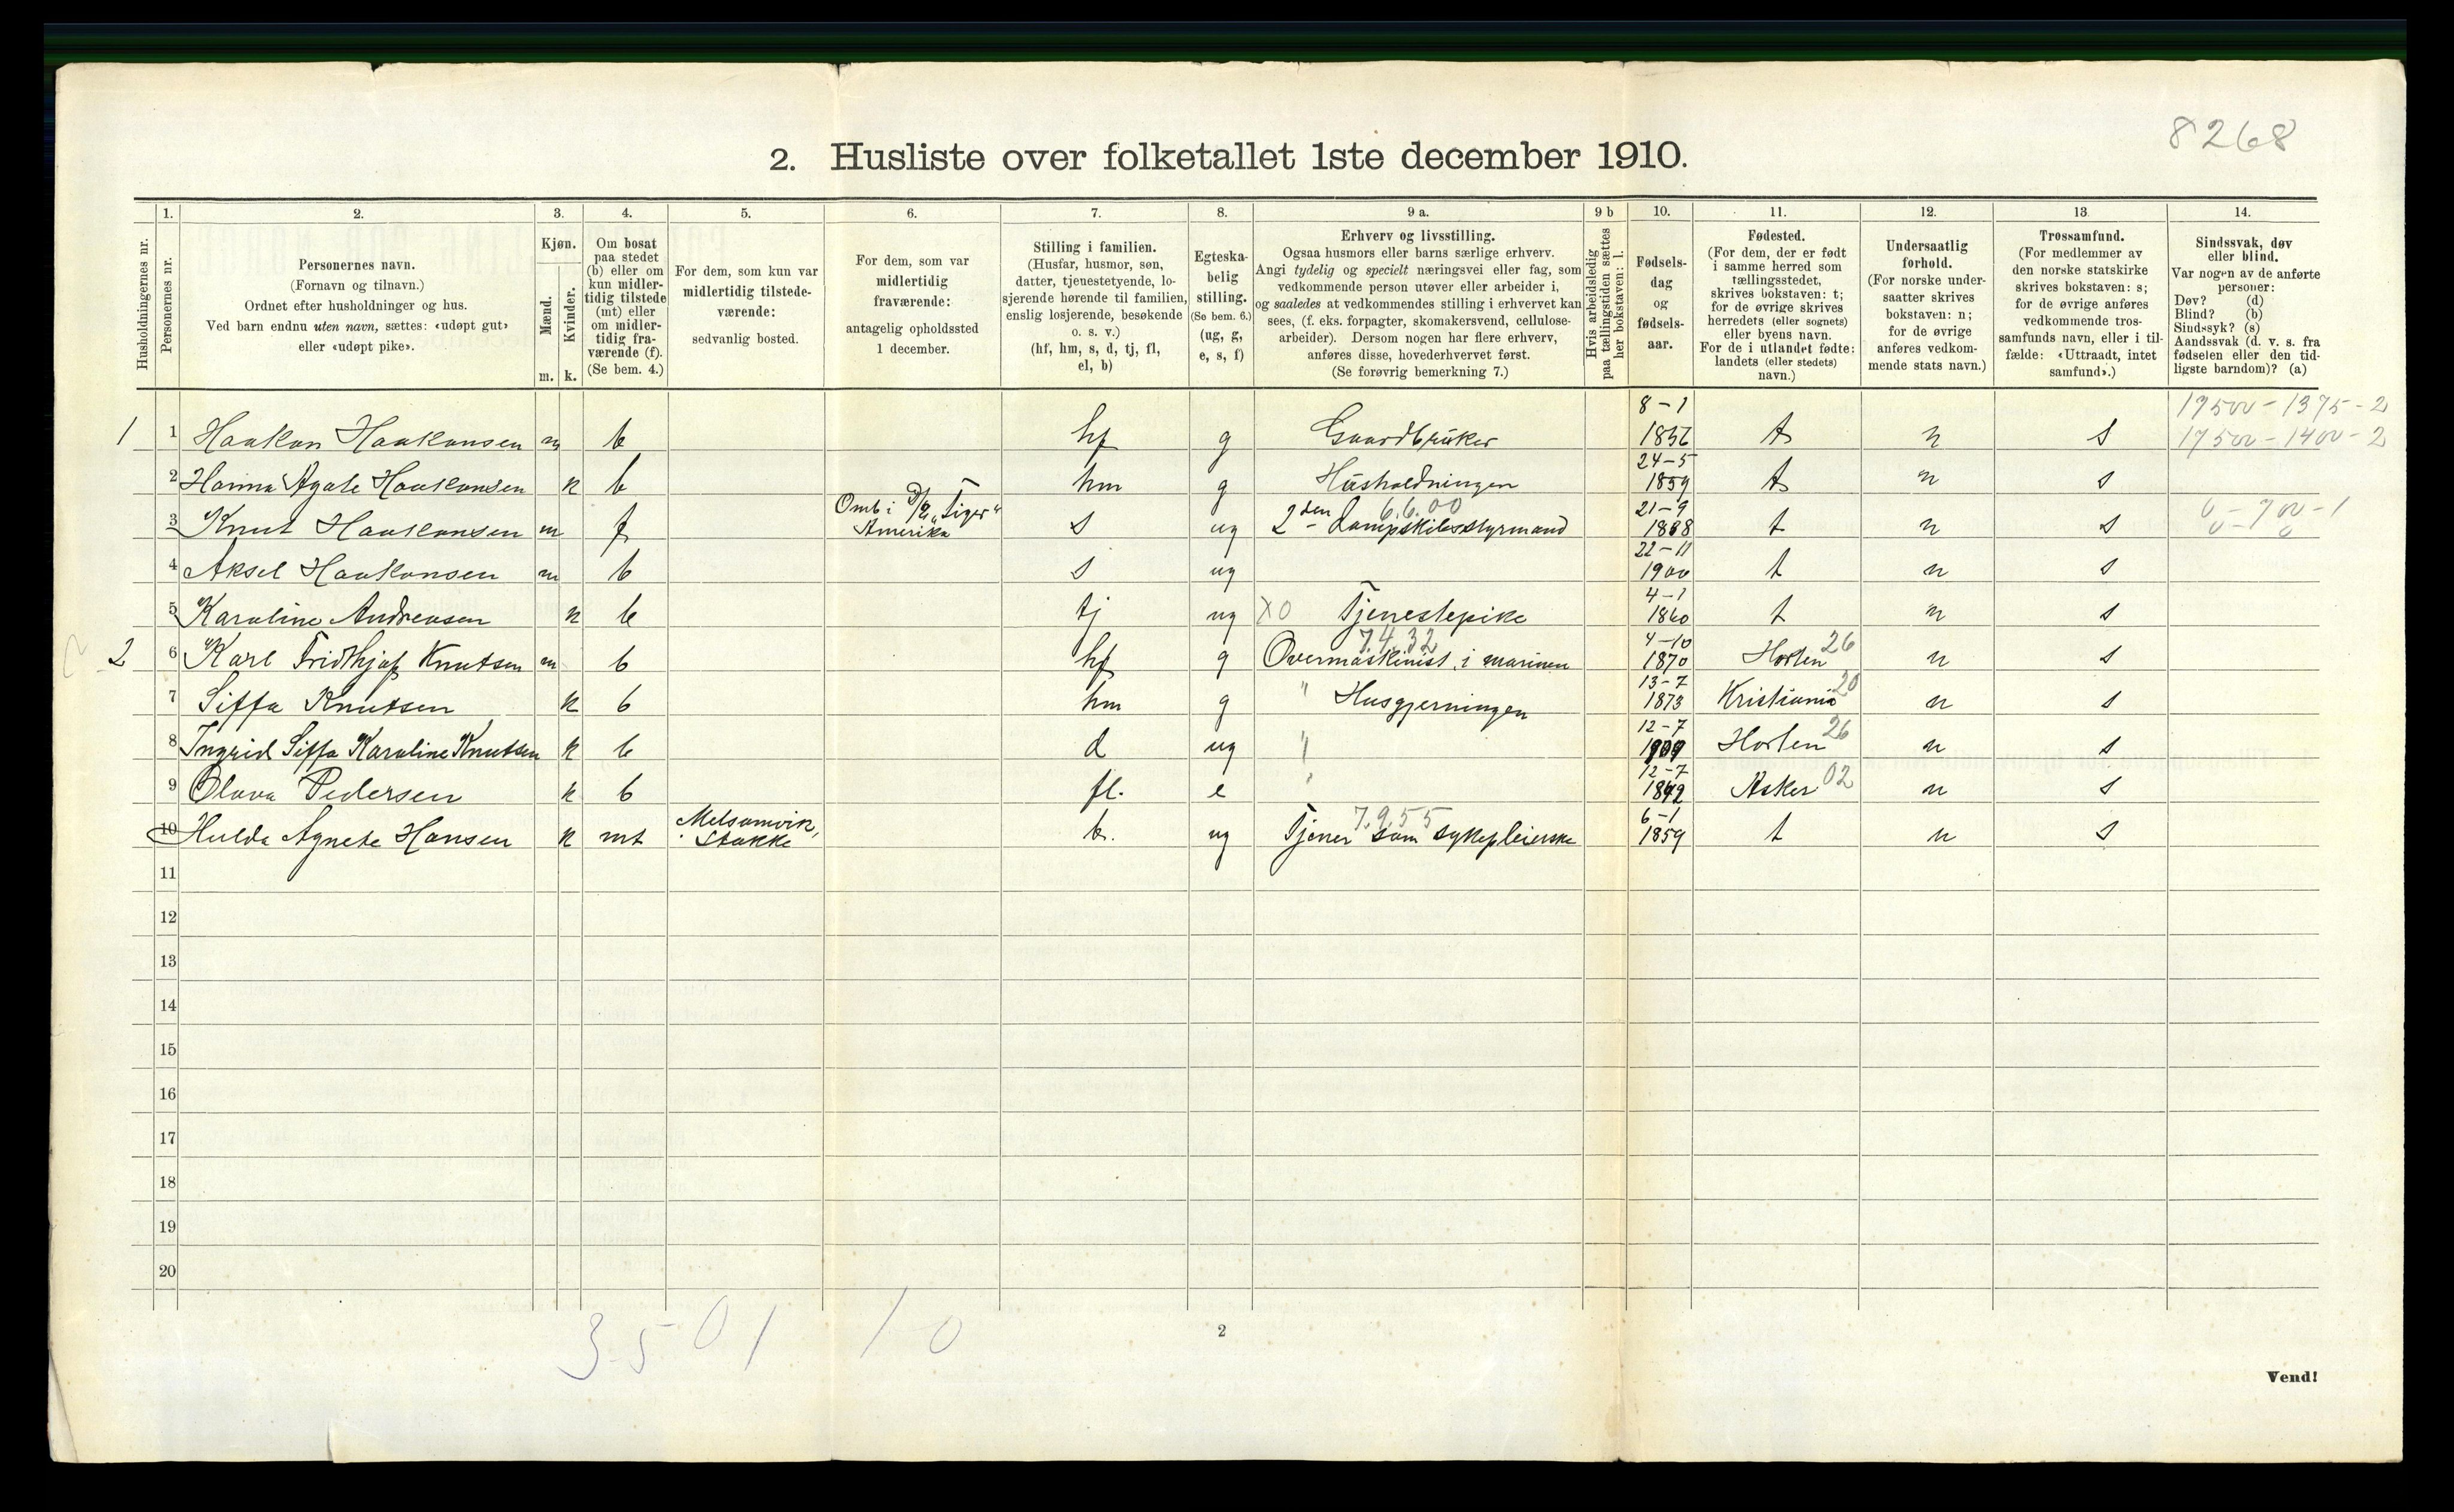 8268
2. Husliste over folketallet 1ste december 1910.
Husholdningernes nr.
1. Personernes nr.
2. Personernes navn.
(Fornavn og tilnavn.)
Ordnet efter husholdninger og hus.
Ved barn endnu uten navn, sættes: «udøpt gut»
eller «udøpt pike».
3. Kjøn.
Mænd. m.
Kvinder. k.
4. Om bosat
paa stedet
(b) eller om
kun midler-
tidig tilstede
(mt) eller
om midler-
tidig fra-
værende (f).
(Se bem. 4.)
5. For dem, som kun var
midlertidig tilstede-
værende:
sedvanlig bosted.
6. For dem, som var
midlertidig
fraværende:
antagelig opholdssted
1 december.
7. Stilling i familien.
(Husfar, husmor, søn,
datter, tjenestetyende, lo-
sjerende hørende til familien,
enslig losjerende, besøkende
o. s. v.)
(hf, hm, s, d, tj, fl,
el, b)
8. Egteska-
belig
stilling.
(Se bem. 6.)
(ug, g,
e, s, f)
9 a. Erhverv og livsstilling.
Ogsaa husmors eller barns særlige erhverv.
Angi tydelig og specielt næringsvei eller fag, som
vedkommende person utøver eller arbeider i,
og saaledes at vedkommendes stilling i erhvervet kan
sees, (f. eks. forpagter, skomakersvend, cellulose-
arbeider). Dersom nogen har flere erhverv,
anføres disse, hovederhvervet først.
(Se forøvrig bemerkning 7.)
9 b Hvis arbeidsledig
paa tællingstiden sættes
her bokstaven: l.
10. Fødsels-
dag
og
fødsels-
aar.
11. Fødested.
(For dem, der er født
i samme herred som
tællingsstedet,
skrives bokstaven: t;
for de øvrige skrives
herredets (eller sognets)
eller byens navn.
For de i utlandet fødte:
landets (eller stedets)
navn.)
12. Undersaatlig
forhold.
(For norske under-
saatter skrives
bokstaven: n;
for de øvrige
anføres vedkom-
mende stats navn.)
13. Trossamfund.
(For medlemmer av
den norske statskirke
skrives bokstaven: s;
for de øvrige anføres
vedkommende tros-
samfunds navn, eller i til-
fælde: «Uttraadt, intet
samfund».)
14. Sindssvak, døv
eller blind.
Var nogen av de anførte
personer:
Døv? (d)
Blind? (b)
Sindssyk? (s)
Aandssvak (d. v. s. fra
fødselen eller den tid-
ligste barndom)? (a)
1 1 Haakon Haakonsen m b hf g Gaardbruker 8-1 1856 t n s 17500-1375-2 17500-1400-2
2 Hanna Agate Haakonsen k b hm g Husholdningen 24-5 1859 t n s
3 Knut Haakonsen m f Omb i D/S „Tiger" Amerika s ug 2den Dampskibsstyrmand 6.6.00 21-9 1888 t n s 0-700-1
4 Aksel Haakonsen m b s ug 22-11 1900 t n s
5 Karoline Andreasen k b tj ug X0 Tjenestepike 4-1 1860 t n s
2 6 Karl Fridthjof Knutsen m b hf g Overmaskinist i marinen 7.4.32 4-10 1870 Horten 26 n s
7 Siffa Knutsen k b hm g " Husgjerningen 13-7 1873 Kristiania 20 n s
8 Ingrid Siffa Karoline Knutsen k b d ug " 12-7 1909 Horten 26 n s
9 Olava Pedersen k b fl. e " 12-7 1842 Asker 02 n s
10 Hulda Agnete Hansen k mt Melsomvik, Stokke b. ug Tjener som sykepleierske 7.9.55 6-1 1859 t n s
11
12
13
14
15
16
17
18
19
20
3-5 01 10
2
Vend!